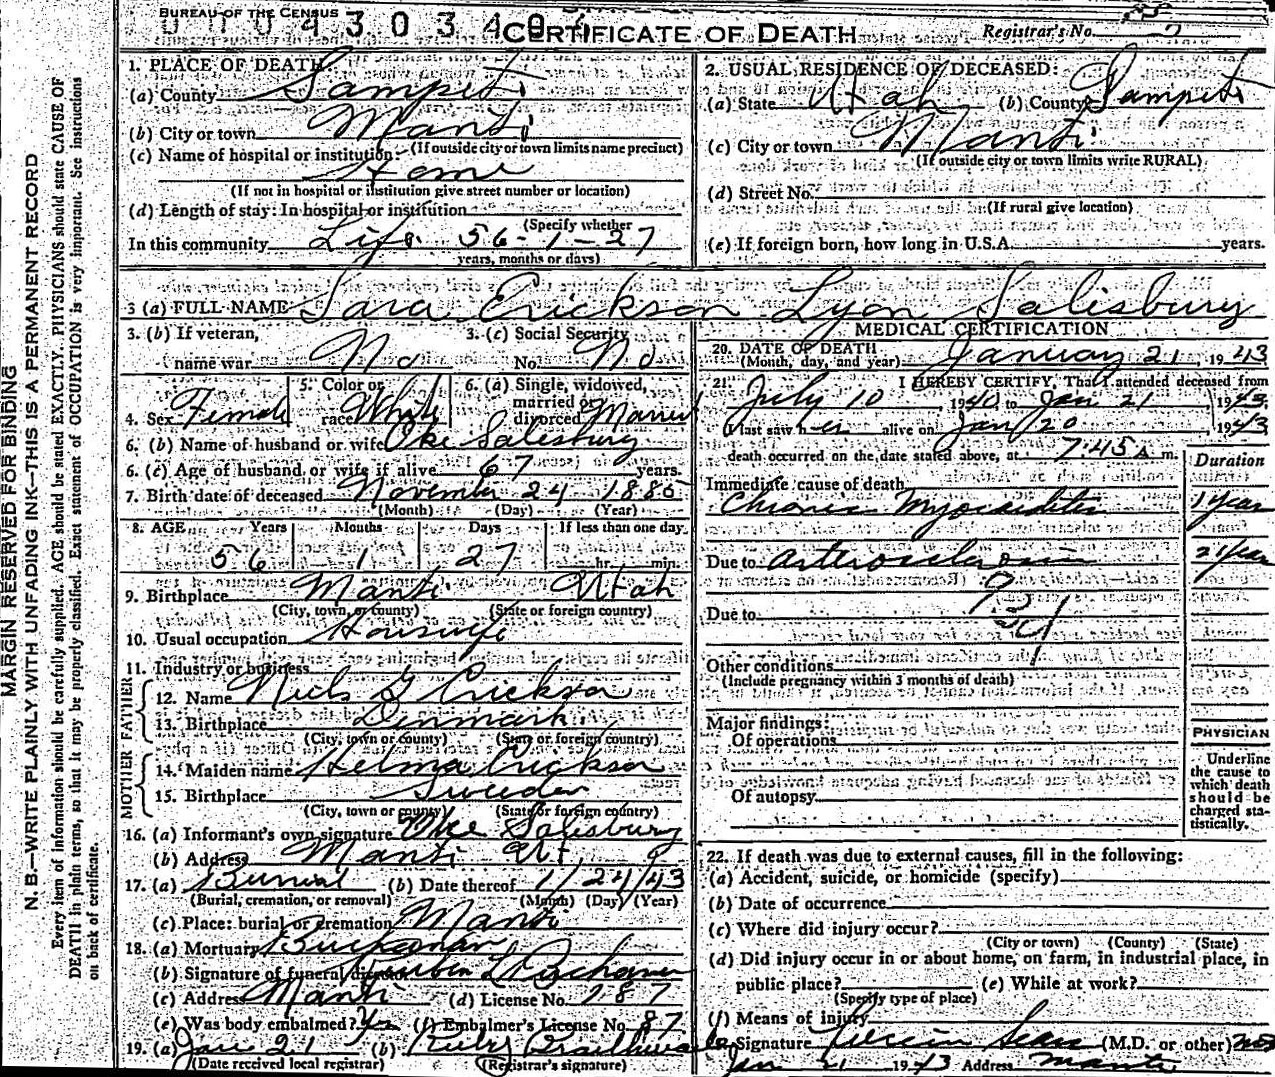 BUREAU OF THE CENSUS
CERTIFICATE OF DEATH
Registrar's No. 2
1. PLACE OF DEATH:
(a) County Sampete
(b) City or town Manti
(If outside city or town limits name precinct)
(c) Name of hospital or institution:
Home
(If not in hospital or institution give street number or location)
(d) Length of stay: In hospital or institution
(Specify whether
In this community Life 56-1-27
years, months or days)
2. USUAL RESIDENCE OF DECEASED:
(a) State Utah (b) County Sampete
(c) City or town Manti
(If outside city or town limits write RURAL)
(d) Street No.
(If rural give location)
(e) If foreign born, how long in U.S.A. years.
3 (a) FULL NAME Sara Erickson Lyon Salisbury
3. (b) If veteran, 3. (c) Social Security
name war No No. No
4. Sex Female 5. Color or race White 6. (a) Single, widowed, married or divorced Married
6. (b) Name of husband or wife Oke Salisbury
6. (c) Age of husband or wife if alive 67 years.
7. Birth date of deceased November 24 1886
(Month) (Day) (Year)
8. AGE Years Months Days If less than one day
56 1 27 hr. min.
9. Birthplace Manti Utah
(City, town, or county) (State or foreign country)
10. Usual occupation Housewife
11. Industry or business
FATHER
12. Name Niels G Erickson
13. Birthplace Denmark
(City, town or county) (State or foreign country)
MOTHER
14. Maiden name Helma Erickson
15. Birthplace Sweden
(City, town or county) (State or foreign country)
16. (a) Informant's own signature Oke Salisbury
(b) Address Manti Ut.
17. (a) Burial (b) Date thereof 1/24/43
(Burial, cremation, or removal) (Month) (Day) (Year)
(c) Place: burial or cremation Manti
18. (a) Mortuary
(b) Signature of funeral director
(c) Address Manti (d) License No. 187
(e) Was body embalmed? Yes (f) Embalmer's License No. 87
19. (a) Jan 21 (b) Ruby
(Date received local registrar) (Registrar's signature)
MEDICAL CERTIFICATION
20. DATE OF DEATH
(Month, day, and year) January 21, 1943
21. I HEREBY CERTIFY, That I attended deceased from
July 10, 1940, to Jan 21 1943,
I last saw her alive on Jan 20 1943
death occurred on the date stated above, at 7:45 A m.
Duration
Immediate cause of death
Chronic Myocarditis 1 year
Due to arterosclerosis 2 year
Due to
Other conditions
(Include pregnancy within 3 months of death)
Major findings:
Of operations
Of autopsy
PHYSICIAN
Underline
the cause to
which death
should be
charged sta-
tistically.
22. If death was due to external causes, fill in the following:
(a) Accident, suicide, or homicide (specify)
(b) Date of occurrence
(c) Where did injury occur?
(City or town) (County) (State)
(d) Did injury occur in or about home, on farm, in industrial place, in
public place? (e) While at work?
(Specify type of place)
(f) Means of injury
Signature (M.D. or other)
Jan 21 1943 Address Manti
MARGIN RESERVED FOR BINDING
N. B—WRITE PLAINLY WITH UNFADING INK—THIS IS A PERMANENT RECORD
Every item of information should be carefully supplied. AGE should be stated EXACTLY. PHYSICIANS should state CAUSE OF
DEATH in plain terms, so that it may be properly classified. Exact statement of OCCUPATION is very important. See instructions
on back of certificate.